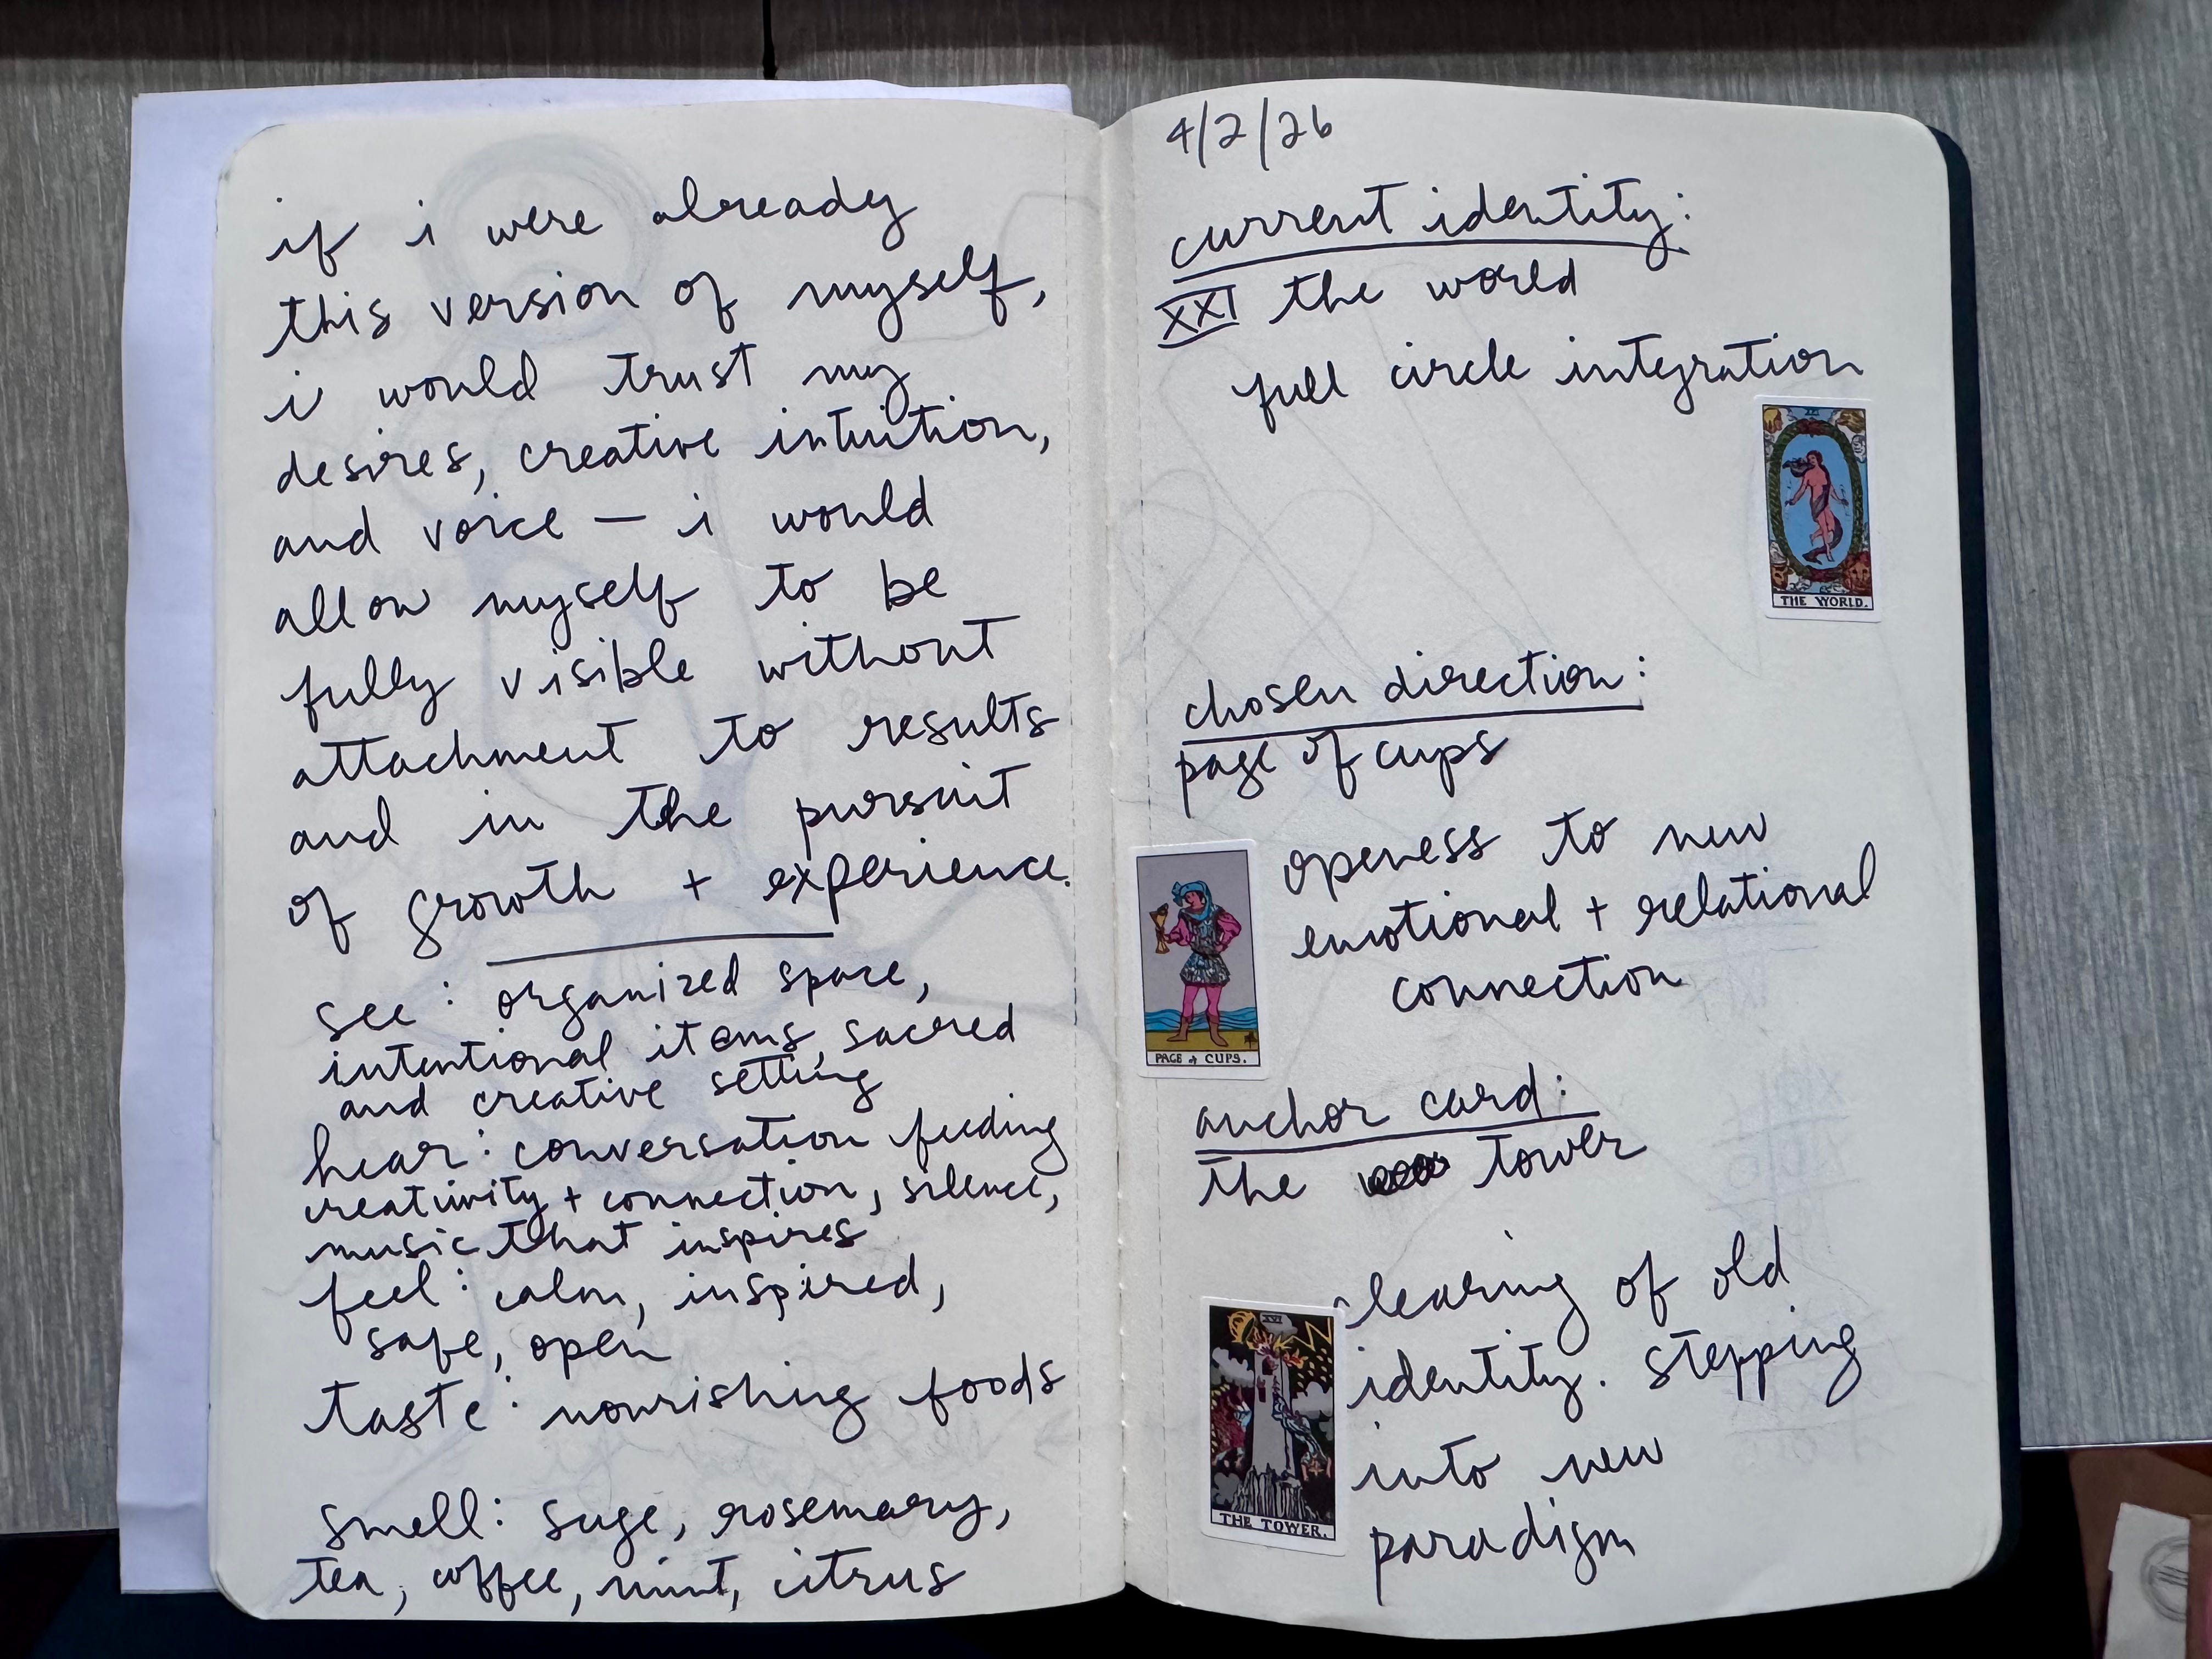 if i were already
this version of myself,
i would trust my
desires, creative intuition,
and voice — i would
allow myself to be
fully visible without
attachment to results
and in the pursuit
of growth + experience.
see: organized space,
intentional items, sacred
and creative setting
hear: conversation feeding
creativity + connection, silence,
music that inspires
feel: calm, inspired,
safe, open
taste: nourishing foods
smell: sage, rosemary,
tea, coffee, mint, citrus
4/2/26
current identity:
XXI the world
full circle integration
THE WORLD.
chosen direction:
page of cups
openess to new
emotional + relational
connection
PAGE of CUPS.
anchor card:
the tower
clearing of old
identity. stepping
into new
paradigm
XVI
THE TOWER.